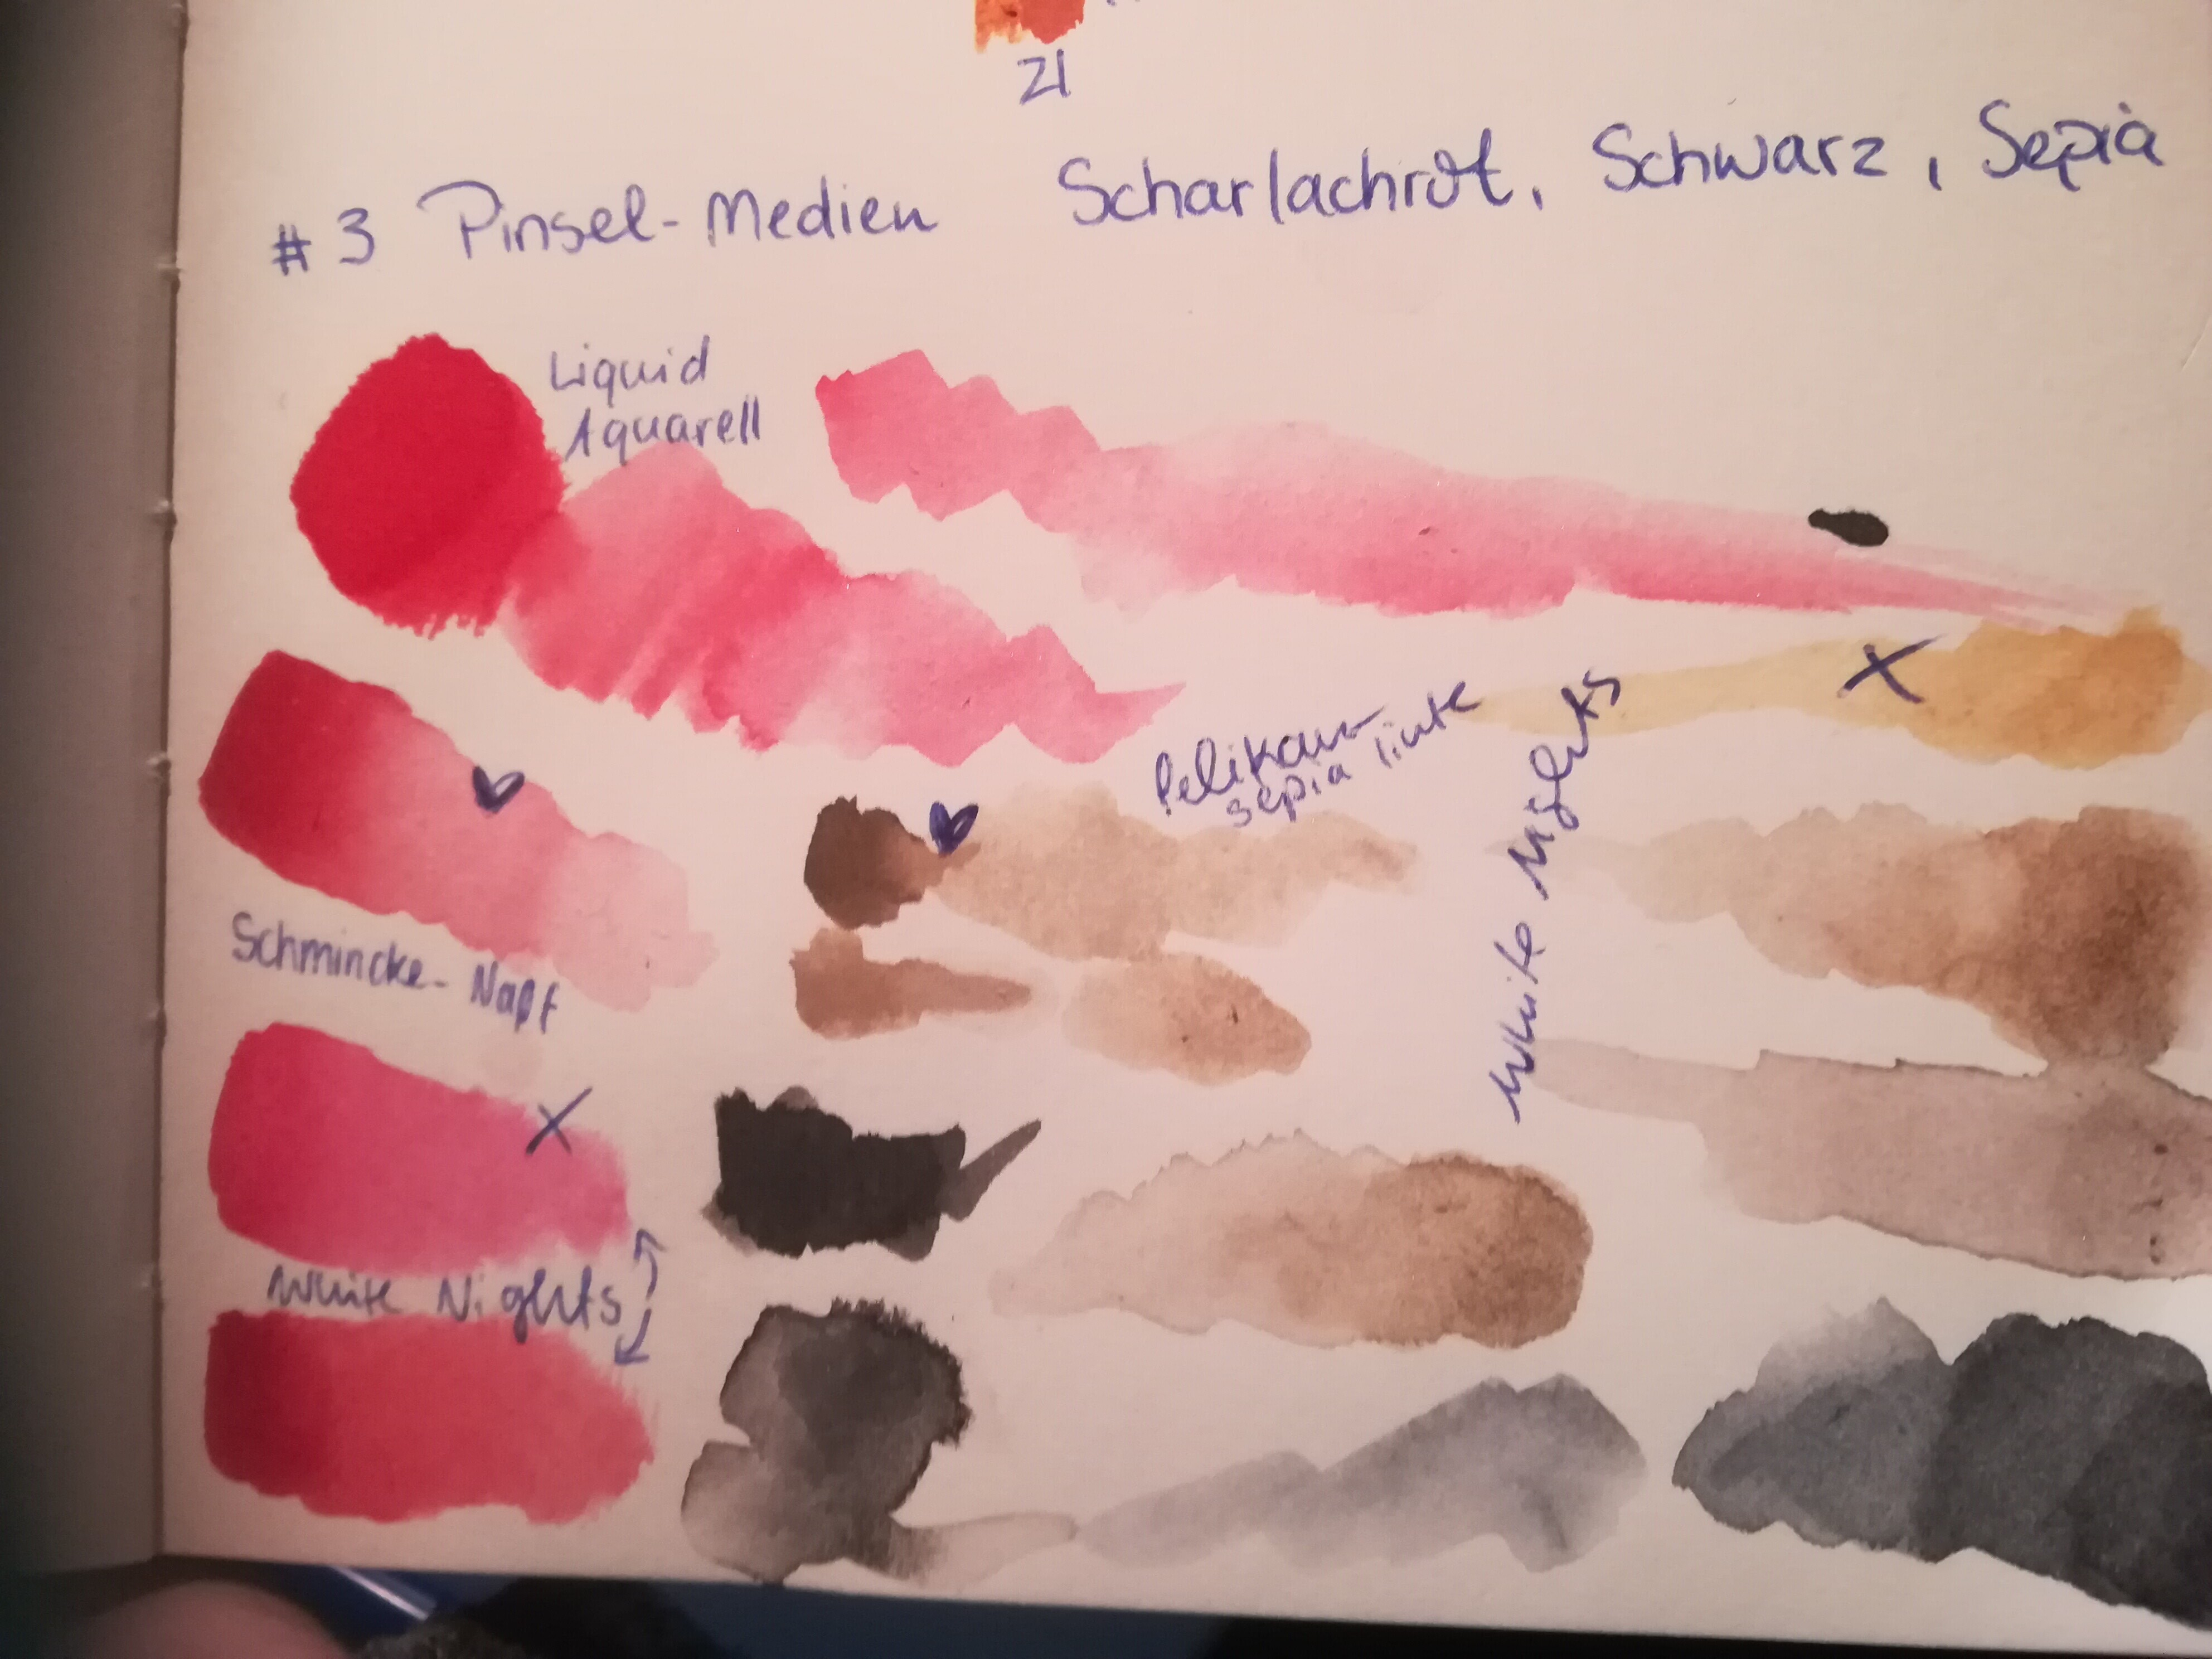 21
#3 Pinsel-Medien Scharlachrot, Schwarz, Sepia
Liquid
Aquarell
Pelikan
sepia tinte
White Nights
Schmincke-Napf
White Nights